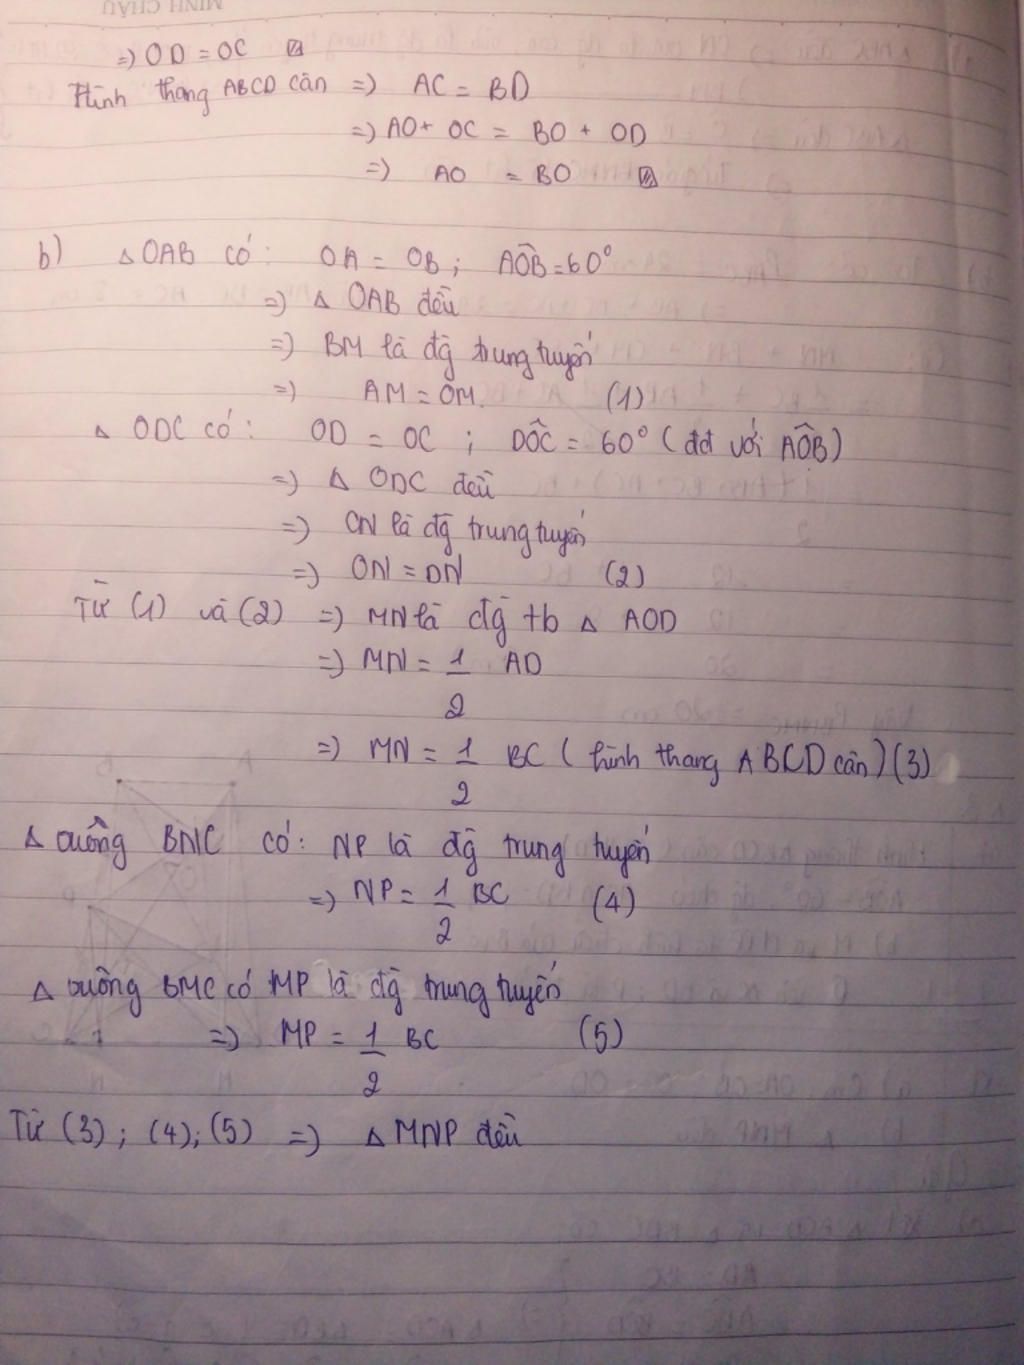 MINH CHÂU
=> OD = OC
Hình thang ABCD cân => AC = BD
=> AO + OC = BO + OD
=> AO = BO
b) △ OAB có: OA = OB ; AÔB = 60°
=> △ OAB đều
=> BM là đg̃ trung tuyến
=> AM = OM. (1)
△ ODC có: OD = OC ; DÔC = 60° (đđ với AÔB)
=> △ ODC đều
=> CN là đg̃ trung tuyến
=> ON = DN (2)
Từ (1) và (2) => MN là đg̃ tb △ AOD
=> MN = 1/2 AD
=> MN = 1/2 BC (hình thang ABCD cân) (3)
△ vuông BNC có: NP là đg̃ trung tuyến
=> NP = 1/2 BC (4)
△ vuông BMC có MP là đg̃ trung tuyến
=> MP = 1/2 BC (5)
Từ (3) ; (4) ; (5) => △ MNP đều